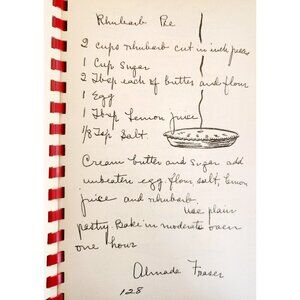 Rhubarb Pie
2 cups rhubarb cut in inch pieces
1 Cup Sugar
2 Tbsp each of butter and flour
1 Egg
1 Tbsp Lemon juice
1/8 Tsp Salt.
Cream butter and sugar add
unbeaten egg, flour, salt, lemon
juice and rhubarb.
use plain
pastry. Bake in moderate oven
one hour
Almada Fraser
128